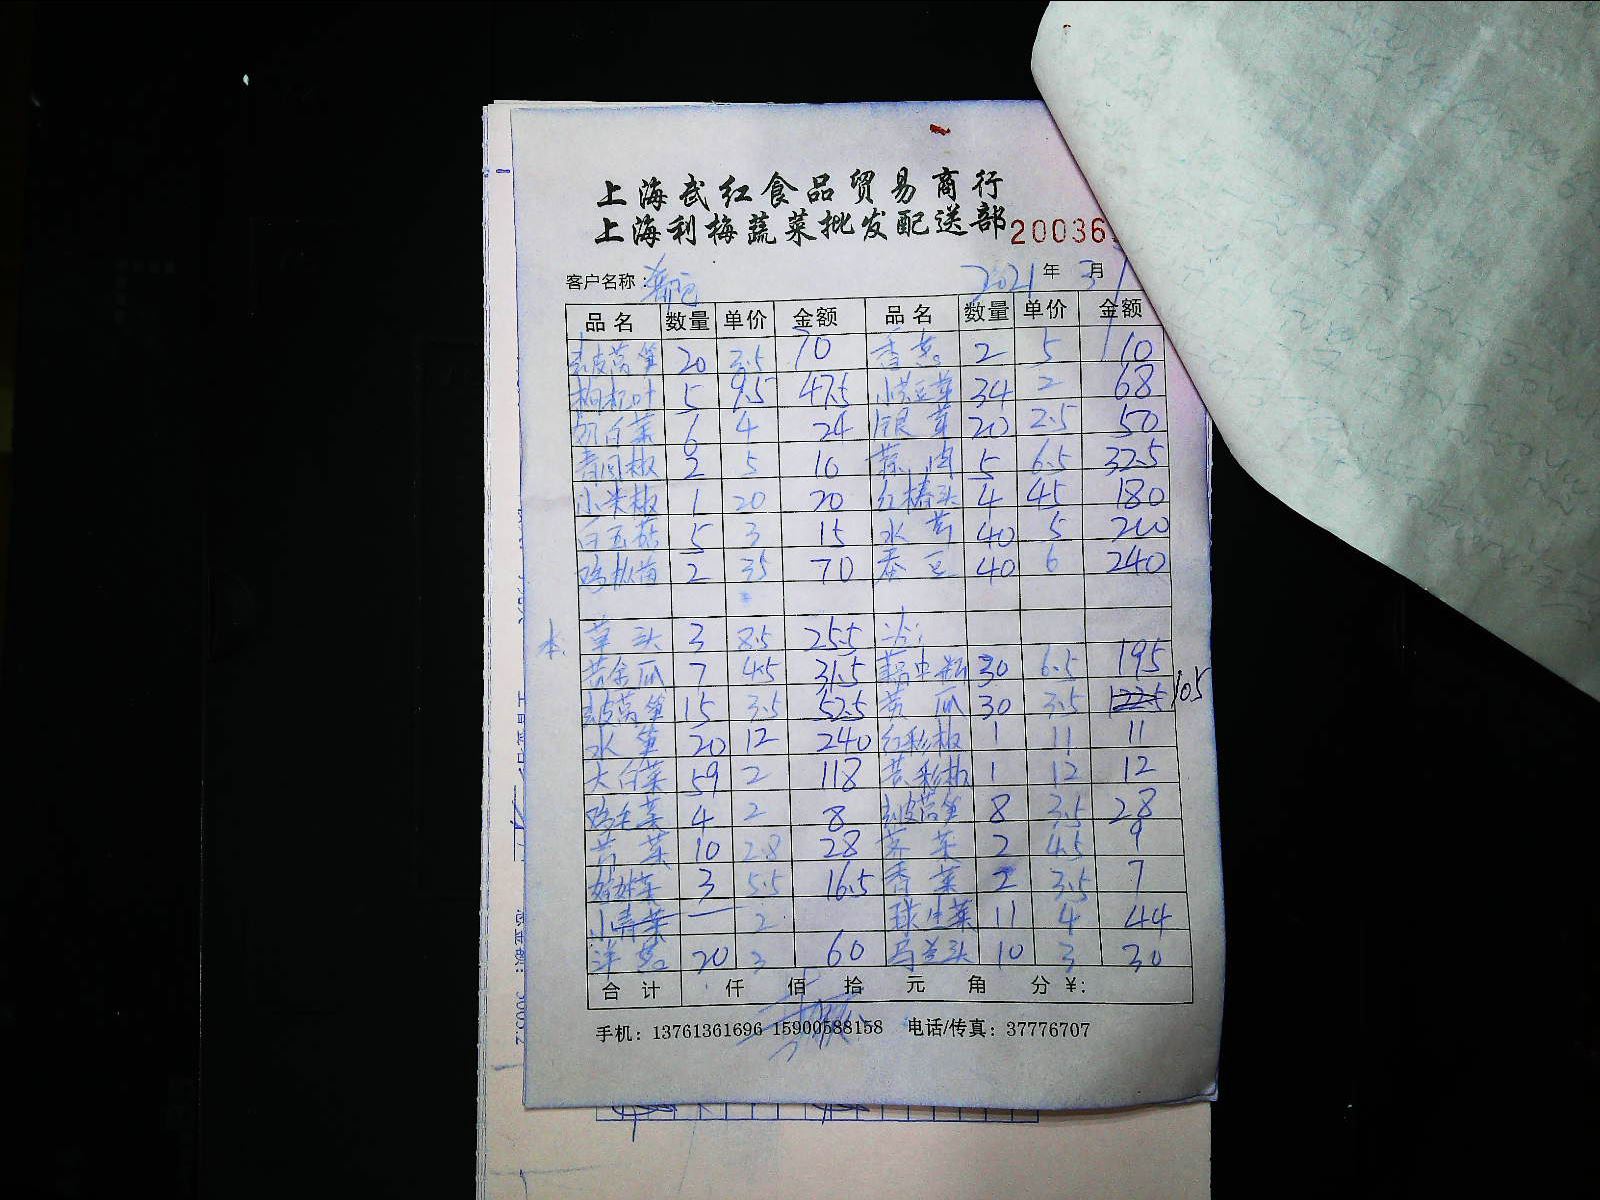 上海武红食品贸易商行
上海利梅蔬菜批发配送部 20036
客户名称： 2021 年 3 月
品名 数量 单价 金额 品名 数量 单价 金额
去皮莴笋 20 3.5 70 香菜 2 5 10
枸杞叶 5 9.5 47.5 小黄豆芽 34 2 68
奶白菜 6 4 24 银芽 20 2.5 50
青圆椒 2 5 10 蒜肉 5 6.5 32.5
小米椒 1 20 20 红椿头 4 45 180
白玉菇 5 3 15 水芹 40 5 200
鸡枞菌 2 35 70 蚕豆 40 6 240
本: 草头 3 8.5 25.5
黄金瓜 7 4.5 31.5 30 6.5 195
去皮莴笋 15 3.5 52.5 黄瓜 30 3.5 105
水笋 20 12 240 红彩椒 1 11 11
大白菜 59 2 118 黄彩椒 1 12 12
鸡毛菜 4 2 8 去皮莴笋 8 3.5 28
芹菜 10 2.8 28 荠菜 2 4.5 9
娃娃菜 3 5.5 16.5 香菜 2 3.5 7
小青菜 2 球生菜 11 4 44
洋葱 20 3 60 马兰头 10 3 30
合计 仟 佰 拾 元 角 分 ¥:
手机：13761361696 15900588158 电话/传真：37776707